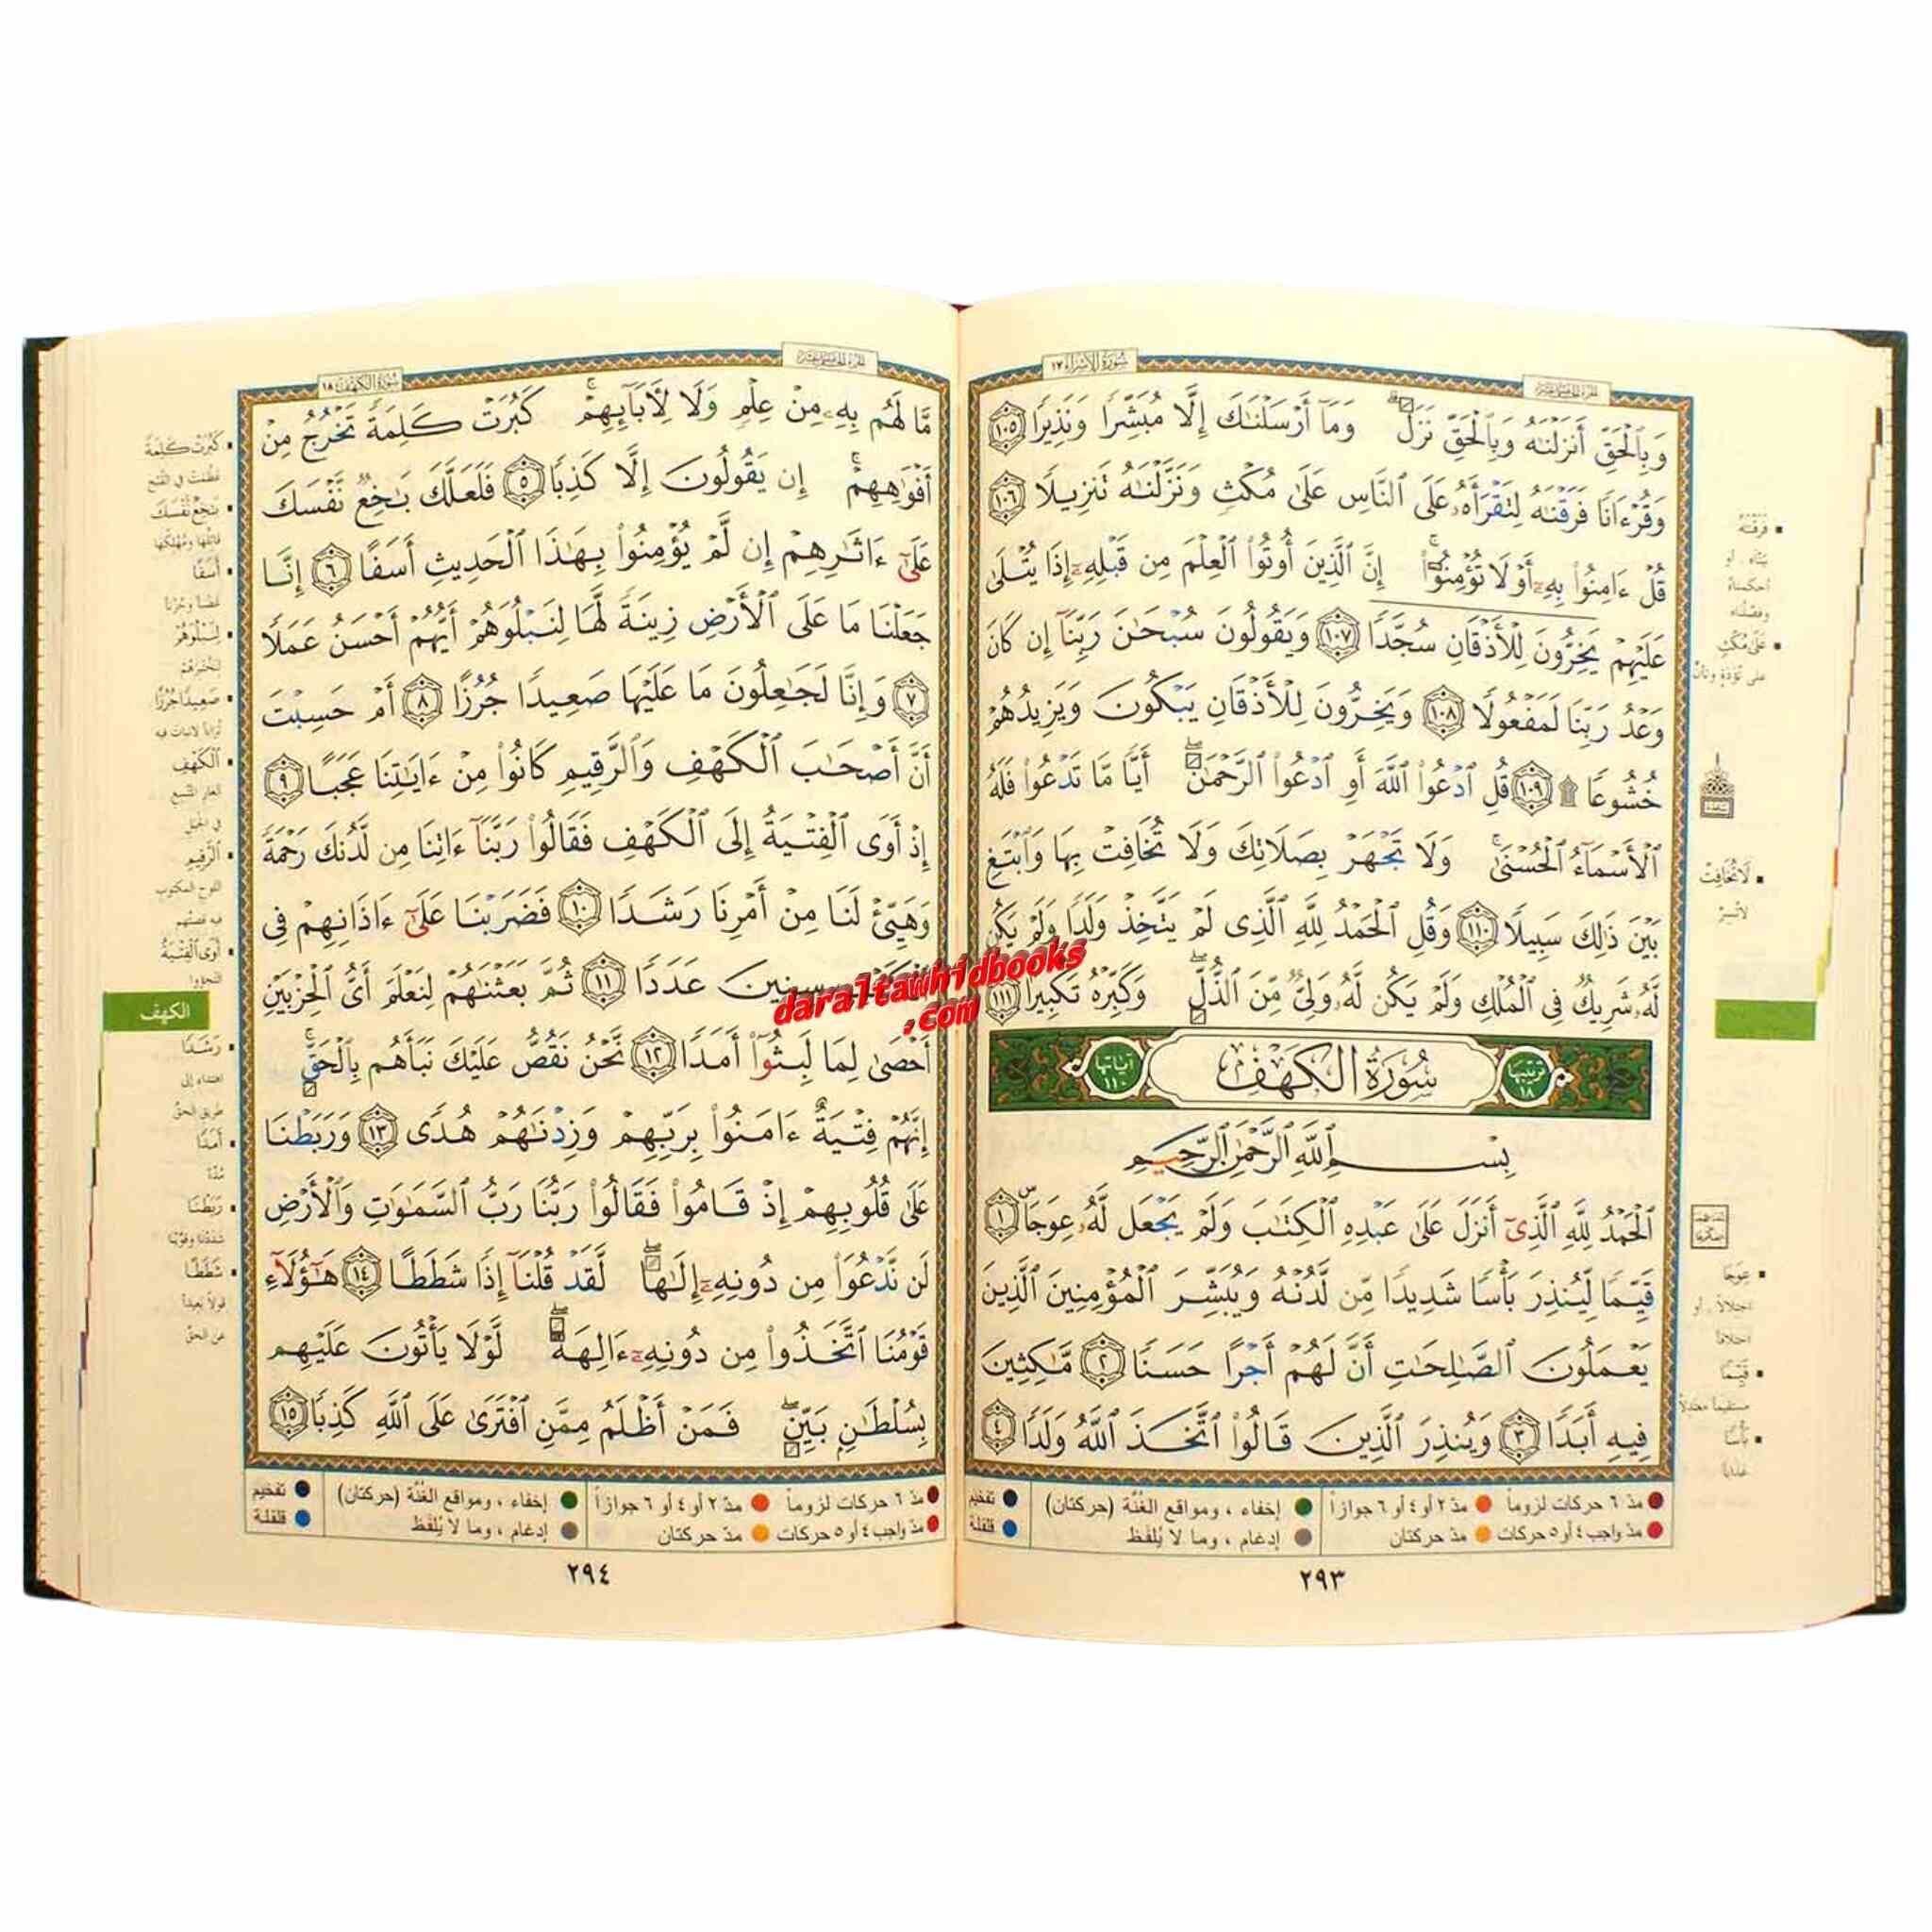 سُورَةُ الإِسْرَاء ١٧
وَبِٱلْحَقِّ أَنزَلْنَٰهُ وَبِٱلْحَقِّ نَزَلَ ۗ وَمَآ أَرْسَلْنَٰكَ إِلَّا مُبَشِّرًا وَنَذِيرًا ١٠٥
وَقُرْءَانًا فَرَقْنَٰهُ لِتَقْرَأَهُۥ عَلَى ٱلنَّاسِ عَلَىٰ مُكْثٍ وَنَزَّلْنَٰهُ تَنزِيلًا ١٠٦
قُلْ ءَامِنُوا۟ بِهِۦٓ أَوْ لَا تُؤْمِنُوٓا۟ ۚ إِنَّ ٱلَّذِينَ أُوتُوا۟ ٱلْعِلْمَ مِن قَبْلِهِۦٓ إِذَا يُتْلَىٰ
عَلَيْهِمْ يَخِرُّونَ لِلْأَذْقَانِ سُجَّدًا ١٠٧ وَيَقُولُونَ سُبْحَٰنَ رَبِّنَآ إِن كَانَ
وَعْدُ رَبِّنَا لَمَفْعُولًا ١٠٨ وَيَخِرُّونَ لِلْأَذْقَانِ يَبْكُونَ وَيَزِيدُهُمْ
خُشُوعًا ۩ ١٠٩ قُلِ ٱدْعُوا۟ ٱللَّهَ أَوِ ٱدْعُوا۟ ٱلرَّحْمَٰنَ ۖ أَيًّا مَّا تَدْعُوا۟ فَلَهُ
ٱلْأَسْمَآءُ ٱلْحُسْنَىٰ ۚ وَلَا تَجْهَرْ بِصَلَاتِكَ وَلَا تُخَافِتْ بِهَا وَٱبْتَغِ
بَيْنَ ذَٰلِكَ سَبِيلًا ١١٠ وَقُلِ ٱلْحَمْدُ لِلَّهِ ٱلَّذِى لَمْ يَتَّخِذْ وَلَدًا وَلَمْ يَكُن
لَّهُۥ شَرِيكٌ فِى ٱلْمُلْكِ وَلَمْ يَكُن لَّهُۥ وَلِىٌّ مِّنَ ٱلذُّلِّ ۖ وَكَبِّرْهُ تَكْبِيرًا ١١١
ترتيبها ١٨ سُورَةُ الكَهْفِ آياتها ١١٠
بِسْمِ ٱللَّهِ ٱلرَّحْمَٰنِ ٱلرَّحِيمِ
ٱلْحَمْدُ لِلَّهِ ٱلَّذِىٓ أَنزَلَ عَلَىٰ عَبْدِهِ ٱلْكِتَٰبَ وَلَمْ يَجْعَل لَّهُۥ عِوَجَا ۜ ١
قَيِّمًا لِّيُنذِرَ بَأْسًا شَدِيدًا مِّن لَّدُنْهُ وَيُبَشِّرَ ٱلْمُؤْمِنِينَ ٱلَّذِينَ
يَعْمَلُونَ ٱلصَّٰلِحَٰتِ أَنَّ لَهُمْ أَجْرًا حَسَنًا ٢ مَّٰكِثِينَ
فِيهِ أَبَدًا ٣ وَيُنذِرَ ٱلَّذِينَ قَالُوا۟ ٱتَّخَذَ ٱللَّهُ وَلَدًا ٤
فَرَقْنَٰهُ
بيّنّاه . أو
أحكمناه
وفصّلناه
عَلَىٰ مُكْثٍ
على تُؤَدَةٍ وتأنٍّ
لَا تُخَافِتْ
لا تُسِرّ
عِوَجًا
اختلالاً . أو
اختلافاً
قَيِّمًا
مستقيماً معتدلاً
بَأْسًا
عذاباً
مدّ ٦ حركات لزوماً مدّ ٢ أو ٤ أو ٦ جوازاً إخفاء ، ومواقع الغُنَّة (حركتان) تفخيم
مدّ واجب ٤ أو ٥ حركات مدّ حركتان إدغام ، وما لا يُلفَظ قلقلة
٢٩٣
سُورَةُ الكَهْف ١٨
مَّا لَهُم بِهِۦ مِنْ عِلْمٍ وَلَا لِـَٔابَآئِهِمْ ۚ كَبُرَتْ كَلِمَةً تَخْرُجُ مِنْ
أَفْوَٰهِهِمْ ۚ إِن يَقُولُونَ إِلَّا كَذِبًا ٥ فَلَعَلَّكَ بَٰخِعٌ نَّفْسَكَ
عَلَىٰٓ ءَاثَٰرِهِمْ إِن لَّمْ يُؤْمِنُوا۟ بِهَٰذَا ٱلْحَدِيثِ أَسَفًا ٦ إِنَّا
جَعَلْنَا مَا عَلَى ٱلْأَرْضِ زِينَةً لَّهَا لِنَبْلُوَهُمْ أَيُّهُمْ أَحْسَنُ عَمَلًا
٧ وَإِنَّا لَجَٰعِلُونَ مَا عَلَيْهَا صَعِيدًا جُرُزًا ٨ أَمْ حَسِبْتَ
أَنَّ أَصْحَٰبَ ٱلْكَهْفِ وَٱلرَّقِيمِ كَانُوا۟ مِنْ ءَايَٰتِنَا عَجَبًا ٩
إِذْ أَوَى ٱلْفِتْيَةُ إِلَى ٱلْكَهْفِ فَقَالُوا۟ رَبَّنَآ ءَاتِنَا مِن لَّدُنكَ رَحْمَةً
وَهَيِّئْ لَنَا مِنْ أَمْرِنَا رَشَدًا ١٠ فَضَرَبْنَا عَلَىٰٓ ءَاذَانِهِمْ فِى
سِنِينَ عَدَدًا ١١ ثُمَّ بَعَثْنَٰهُمْ لِنَعْلَمَ أَىُّ ٱلْحِزْبَيْنِ
أَحْصَىٰ لِمَا لَبِثُوٓا۟ أَمَدًا ١٢ نَّحْنُ نَقُصُّ عَلَيْكَ نَبَأَهُم بِٱلْحَقِّ ۚ
إِنَّهُمْ فِتْيَةٌ ءَامَنُوا۟ بِرَبِّهِمْ وَزِدْنَٰهُمْ هُدًى ١٣ وَرَبَطْنَا
عَلَىٰ قُلُوبِهِمْ إِذْ قَامُوا۟ فَقَالُوا۟ رَبُّنَا رَبُّ ٱلسَّمَٰوَٰتِ وَٱلْأَرْضِ
لَن نَّدْعُوَا۟ مِن دُونِهِۦٓ إِلَٰهًا ۖ لَّقَدْ قُلْنَآ إِذًا شَطَطًا ١٤ هَٰٓؤُلَآءِ
قَوْمُنَا ٱتَّخَذُوا۟ مِن دُونِهِۦٓ ءَالِهَةً ۖ لَّوْلَا يَأْتُونَ عَلَيْهِم
بِسُلْطَٰنٍۭ بَيِّنٍ ۖ فَمَنْ أَظْلَمُ مِمَّنِ ٱفْتَرَىٰ عَلَى ٱللَّهِ كَذِبًا ١٥
كَبُرَتْ كَلِمَةً
عظمت في القبح
بَٰخِعٌ نَّفْسَكَ
قاتلها ومُهلكها
أَسَفًا
غضباً وحُزناً
لِنَبْلُوَهُمْ
لنختبرهم
صَعِيدًا جُرُزًا
تراباً لا نبات فيه
ٱلْكَهْفِ
الغار المتّسع
في الجبل
ٱلرَّقِيمِ
اللوح المكتوب
فيه قصّتهم
أَوَى ٱلْفِتْيَةُ
التجؤوا
الكهف
رَشَدًا
اهتداء إلى
طريق الحقّ
أَمَدًا
مُدّة
رَبَطْنَا
شددنا وقوّينا
شَطَطًا
قولاً بعيداً
عن الحقّ
مدّ ٦ حركات لزوماً مدّ ٢ أو ٤ أو ٦ جوازاً إخفاء ، ومواقع الغُنَّة (حركتان) تفخيم
مدّ واجب ٤ أو ٥ حركات مدّ حركتان إدغام ، وما لا يُلفَظ قلقلة
٢٩٤
daraltawhidbooks
.com